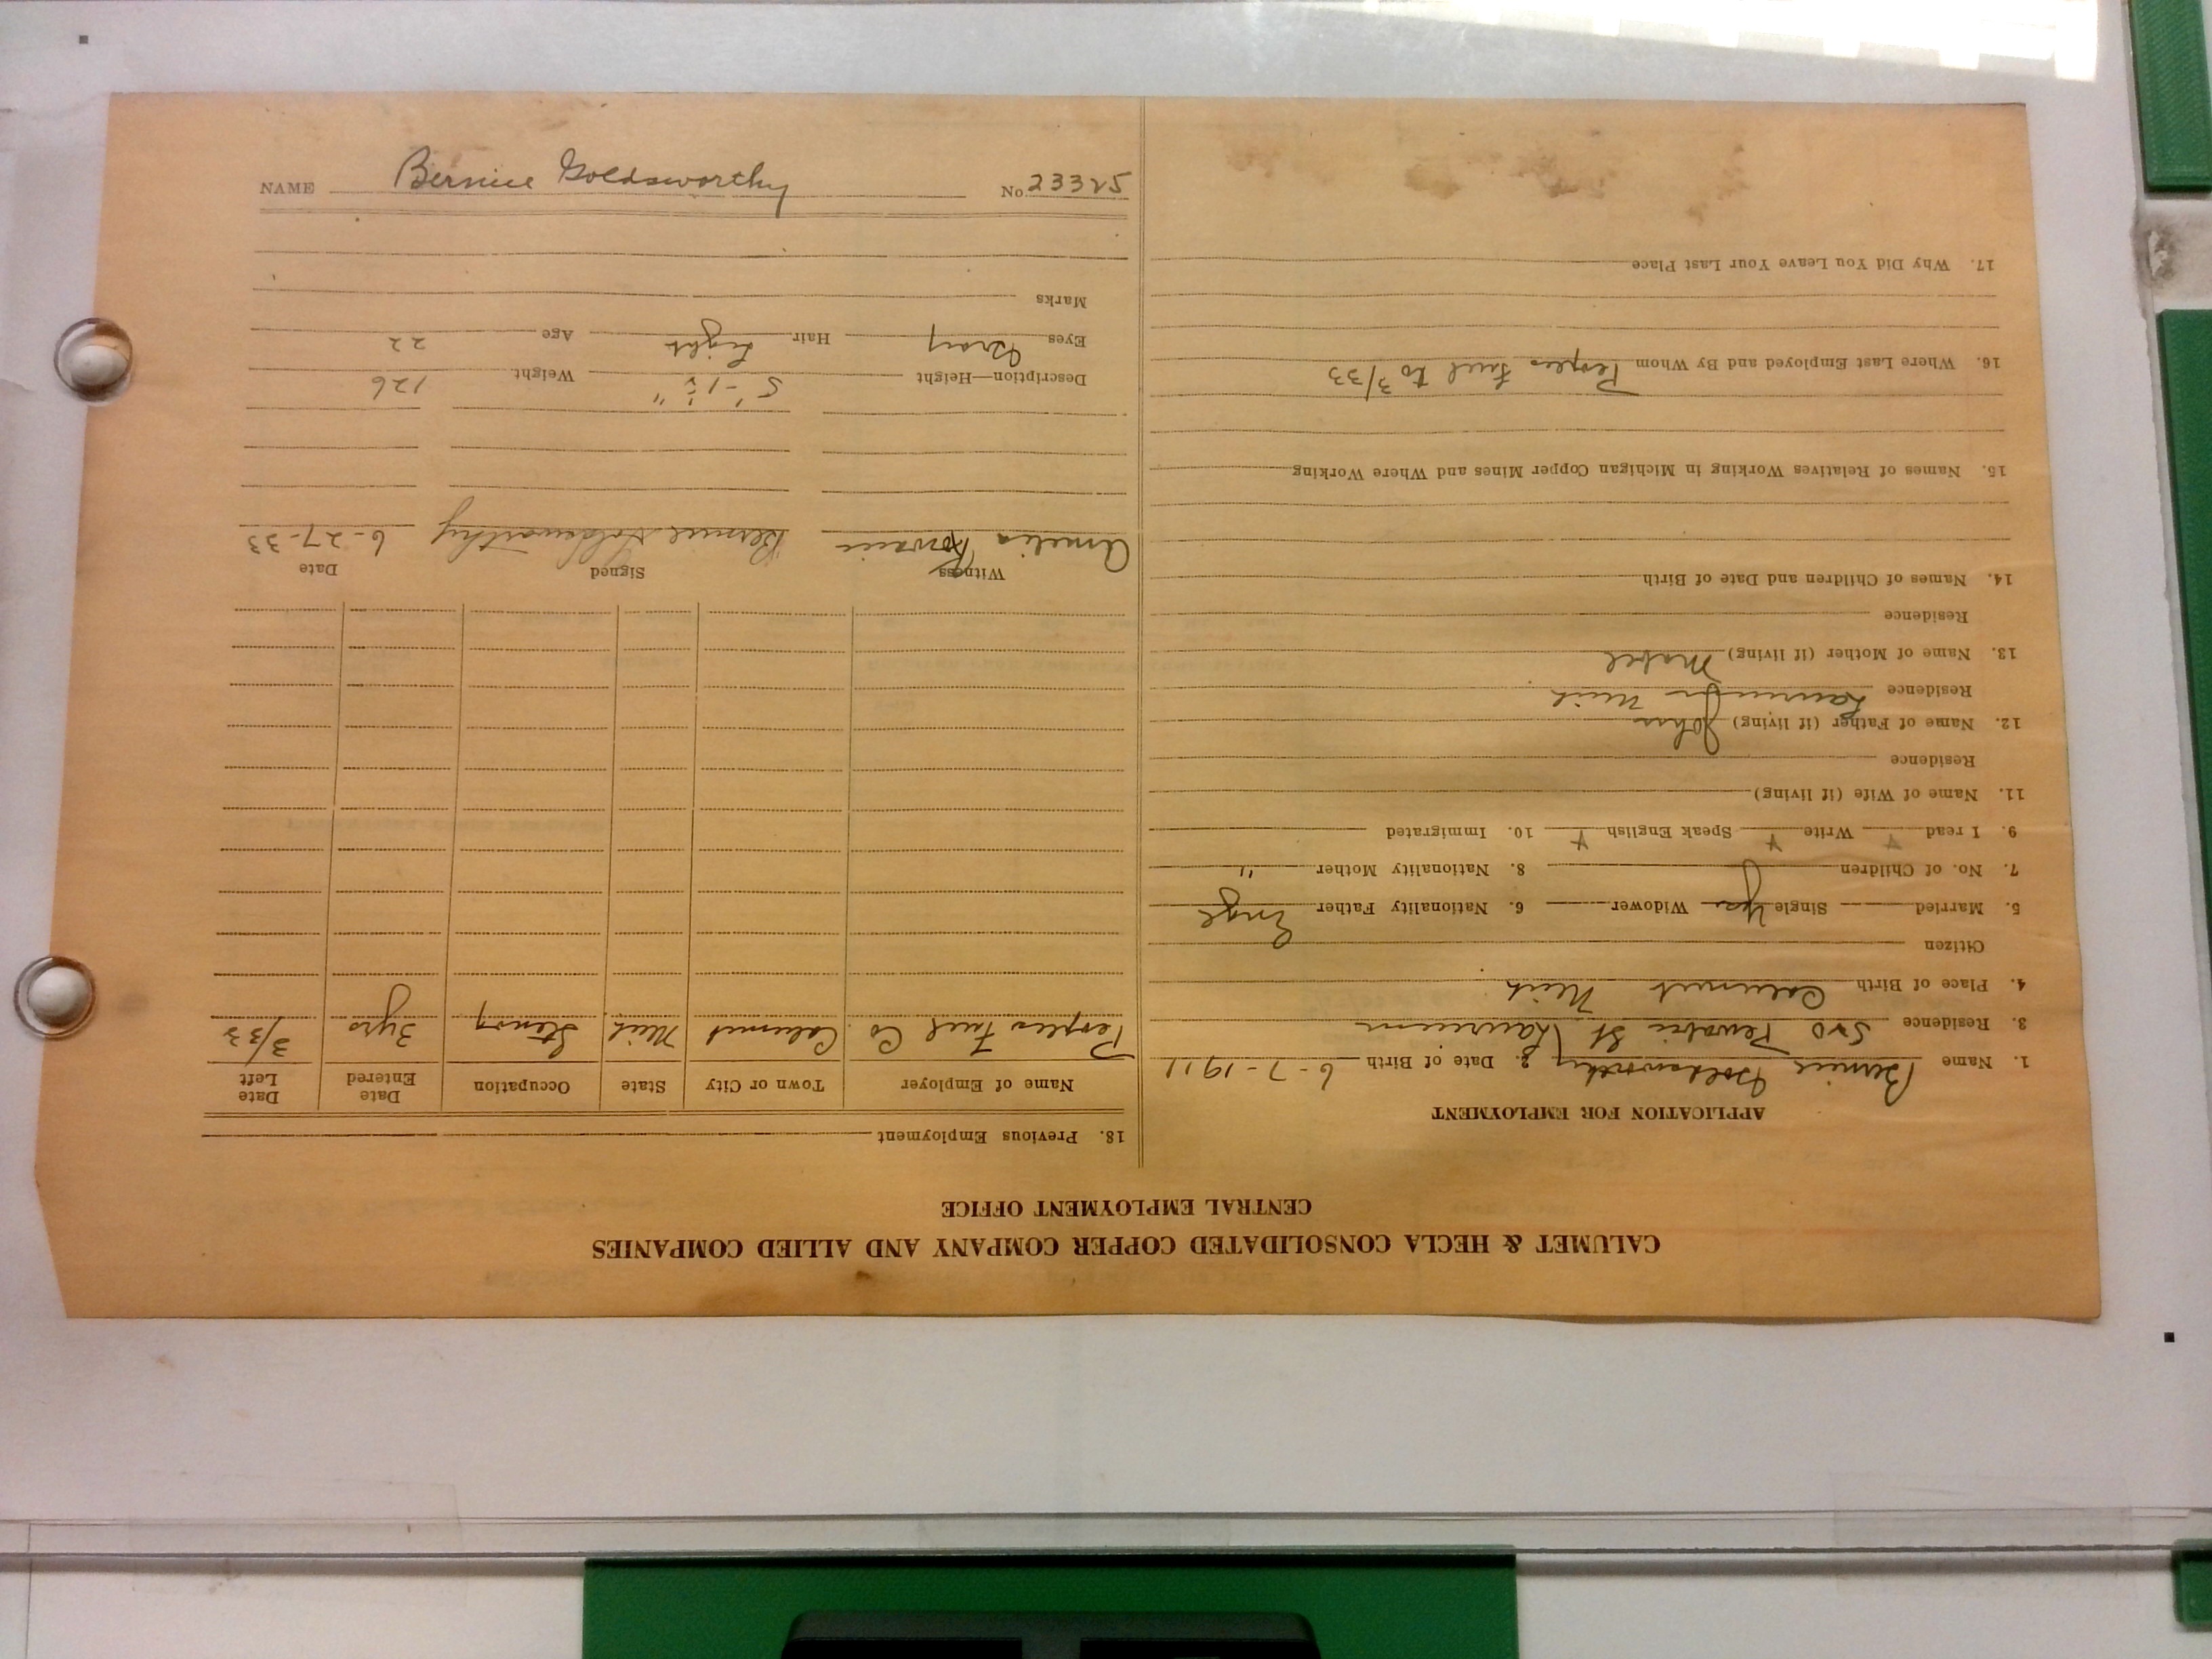 NAME Bernice Goldsworthy No. 23325
CALUMET & HECLA CONSOLIDATED COPPER COMPANY AND ALLIED COMPANIES
CENTRAL EMPLOYMENT OFFICE
APPLICATION FOR EMPLOYMENT
1. Name Bernice Goldsworthy 2. Date of Birth 6-7-1911
3. Residence Pewabic St Laurium
4. Place of Birth Calumet Mich
Citizen
5. Married Single Yes Widower 6. Nationality Father Engl
7. No. of Children 8. Nationality Mother "
9. I read Y Write Y Speak English Y 10. Immigrated
11. Name of Wife (if living)
Residence
12. Name of Father (if living) John
Residence Laurium Mich
13. Name of Mother (if living) Mabel
Residence
14. Names of Children and Date of Birth
15. Names of Relatives Working in Michigan Copper Mines and Where Working
16. Where Last Employed and By Whom Peoples Fuel to 3/33
17. Why Did You Leave Your Last Place
18. Previous Employment
Name of Employer Town or City State Occupation Date Entered Date Left
Peoples Fuel Co. Calumet Mich Stenog 3yrs 3/33
Witness Signed Date
Amelia Bernice Goldsworthy 6-27-33
Description—Height 5'-1½" Weight 126
Eyes Gray Hair Light Age 22
Marks